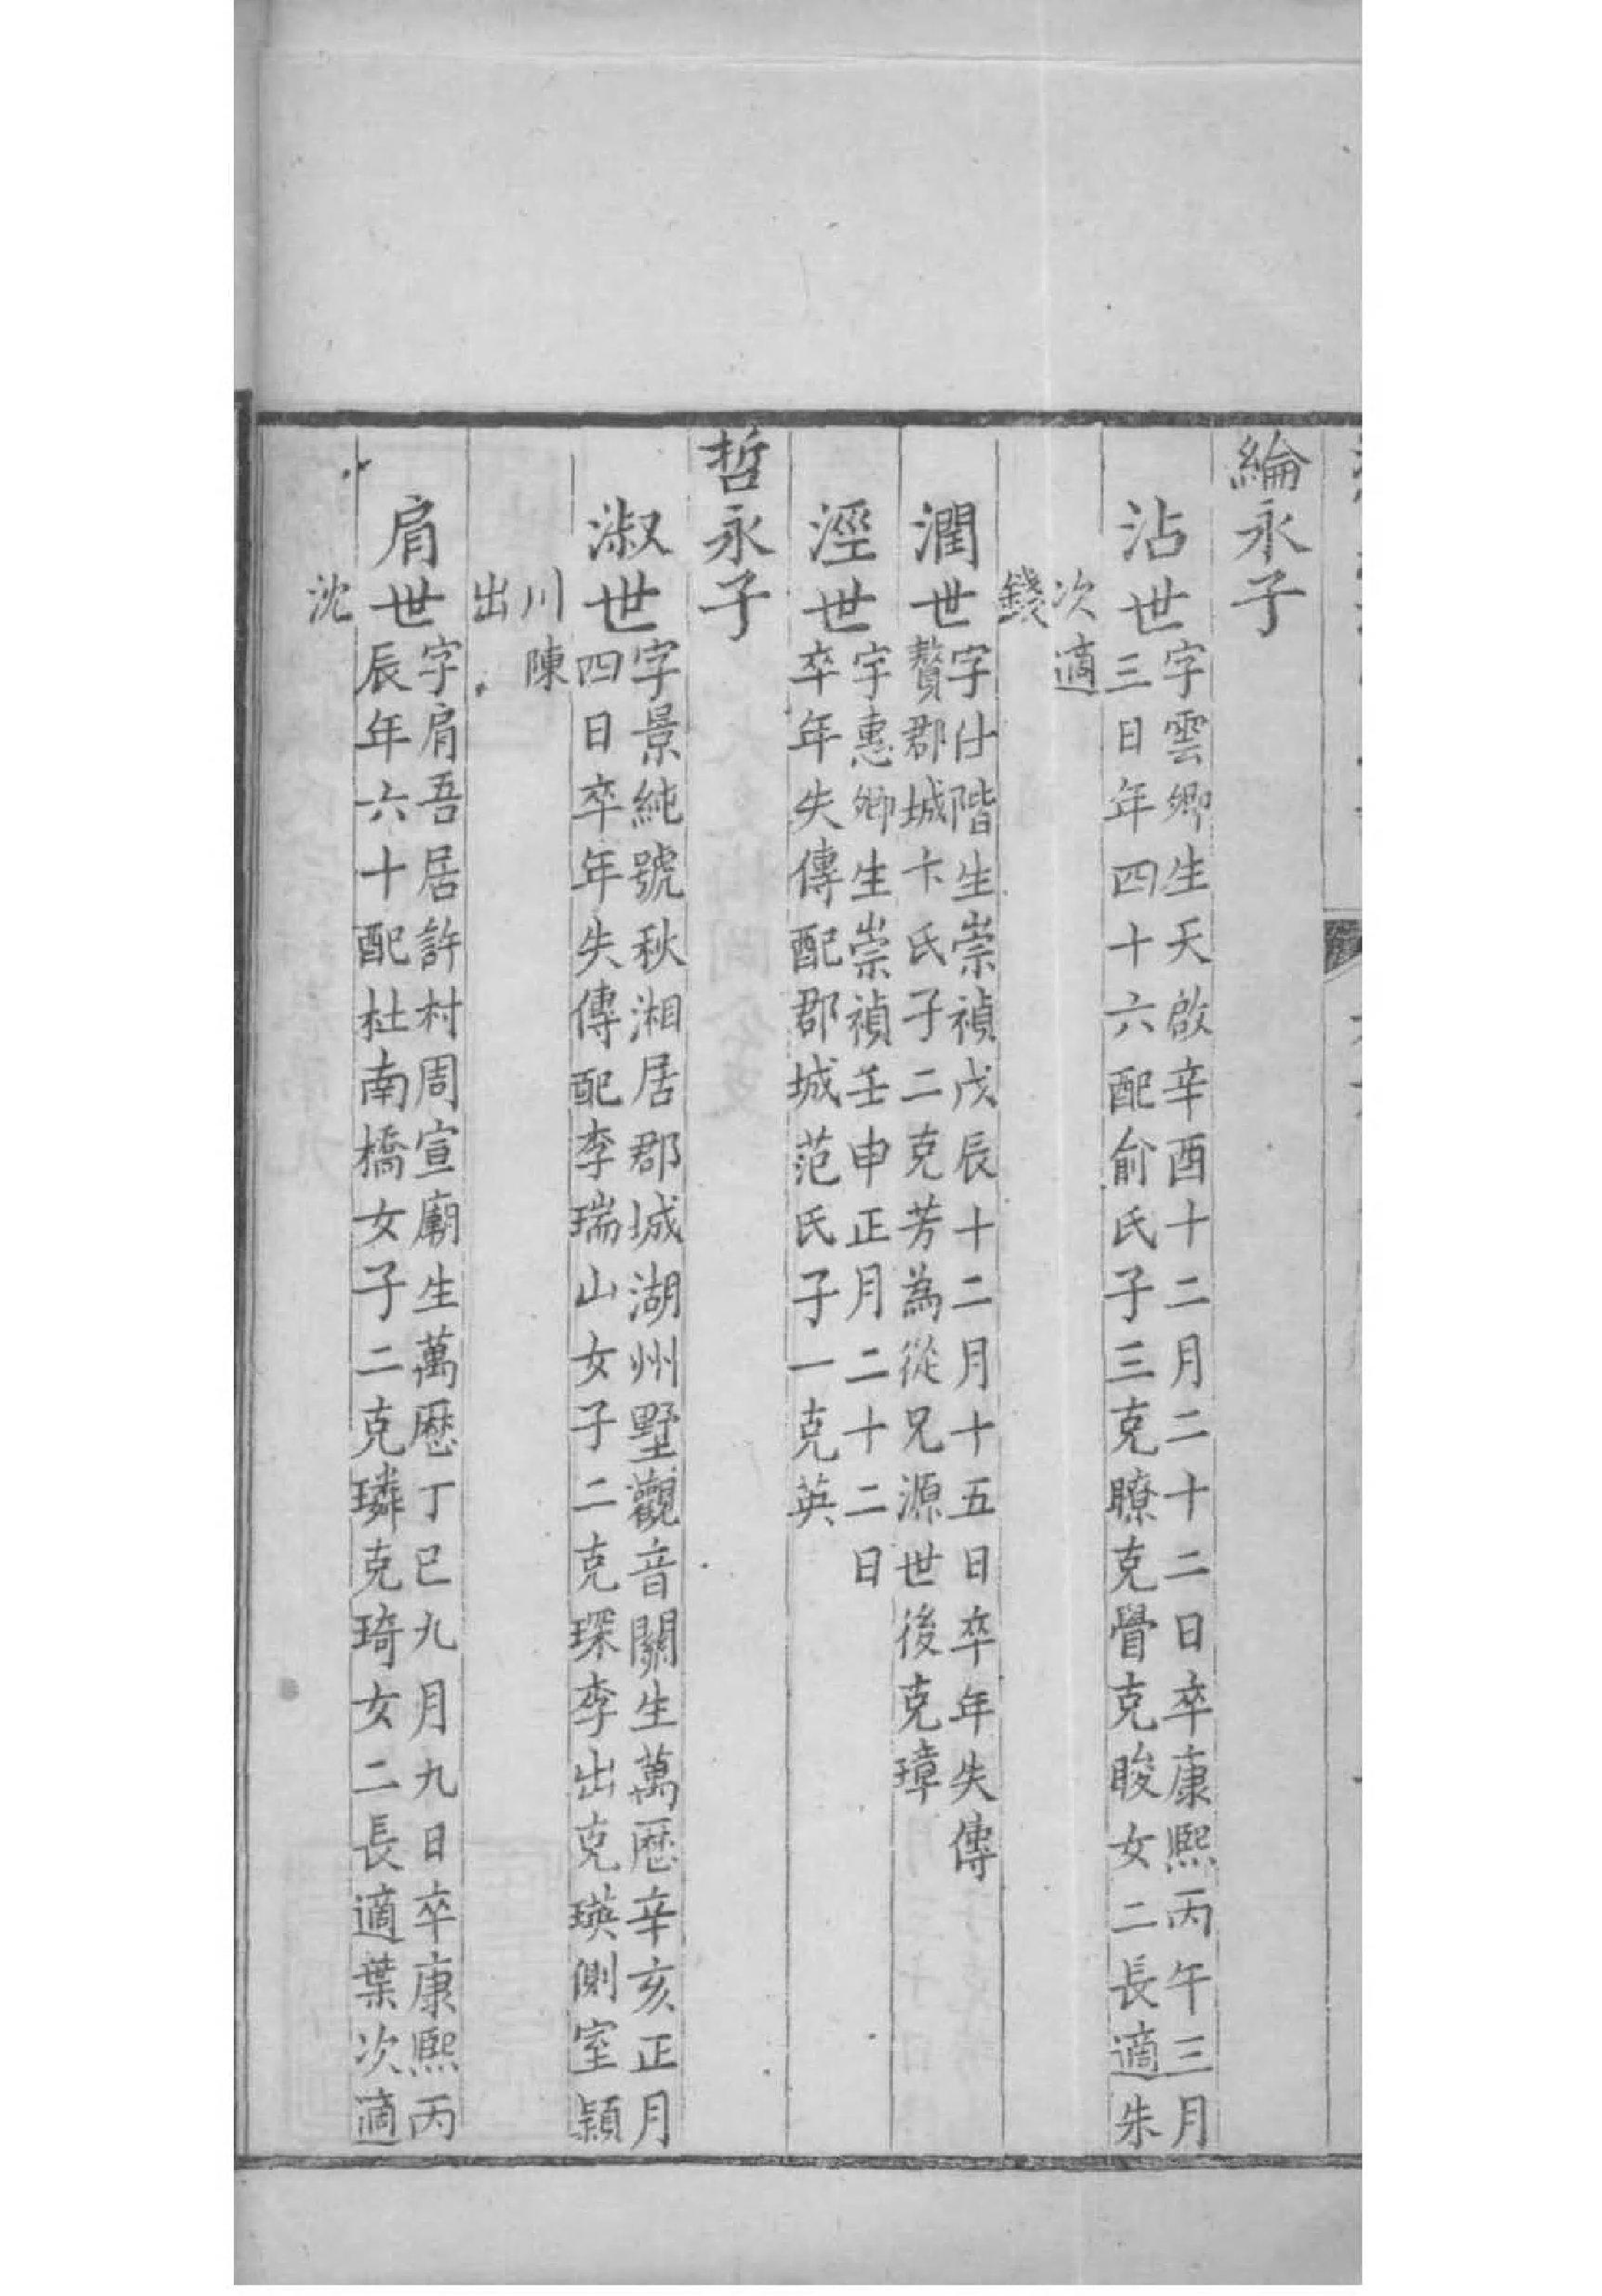 綸永子
沾世
字雲卿生天啟辛酉十二月二十二日卒康熙丙午三月
三日年四十六配俞氏子三克瞭克㫮克睃女二長適朱
次適
錢
潤世
字仕階生崇禎戊辰十二月十五日卒年失傳
贅郡城卞氏子二克芳為從兄源世後克璋
涇世
字惠卿生崇禎壬申正月二十二日
卒年失傳配郡城范氏子一克英
哲永子
淑世
字景純號秋湘居郡城湖州墅觀音關生萬厯辛亥正月
四日卒年失傳配李瑞山女子二克琛李出克瑛側室潁
川陳
出
肩世
字肩吾居許村周宣廟生萬厯丁巳九月九日卒康熙丙
辰年六十配杜南橋女子二克璘克琦女二長適葉次適
沈